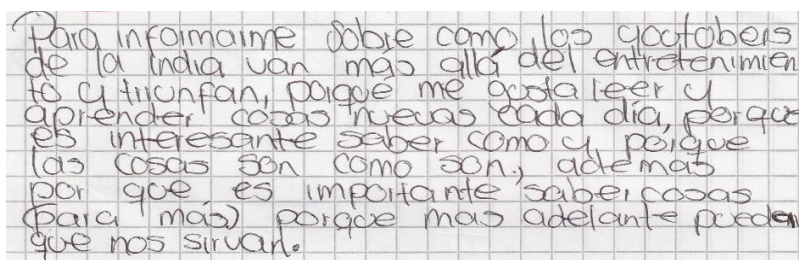 Para informarme sobre como los yootobers
de la India van más allá del entretenimien
to y triunfan, porqué me gusta leer y
aprender cosas nuevas cada día, porque
es interesante saber como y porque
las cosas son como son, además
por que es importante saber cosas
(para mas) porque mas adelante pueden
que nos sirvan.